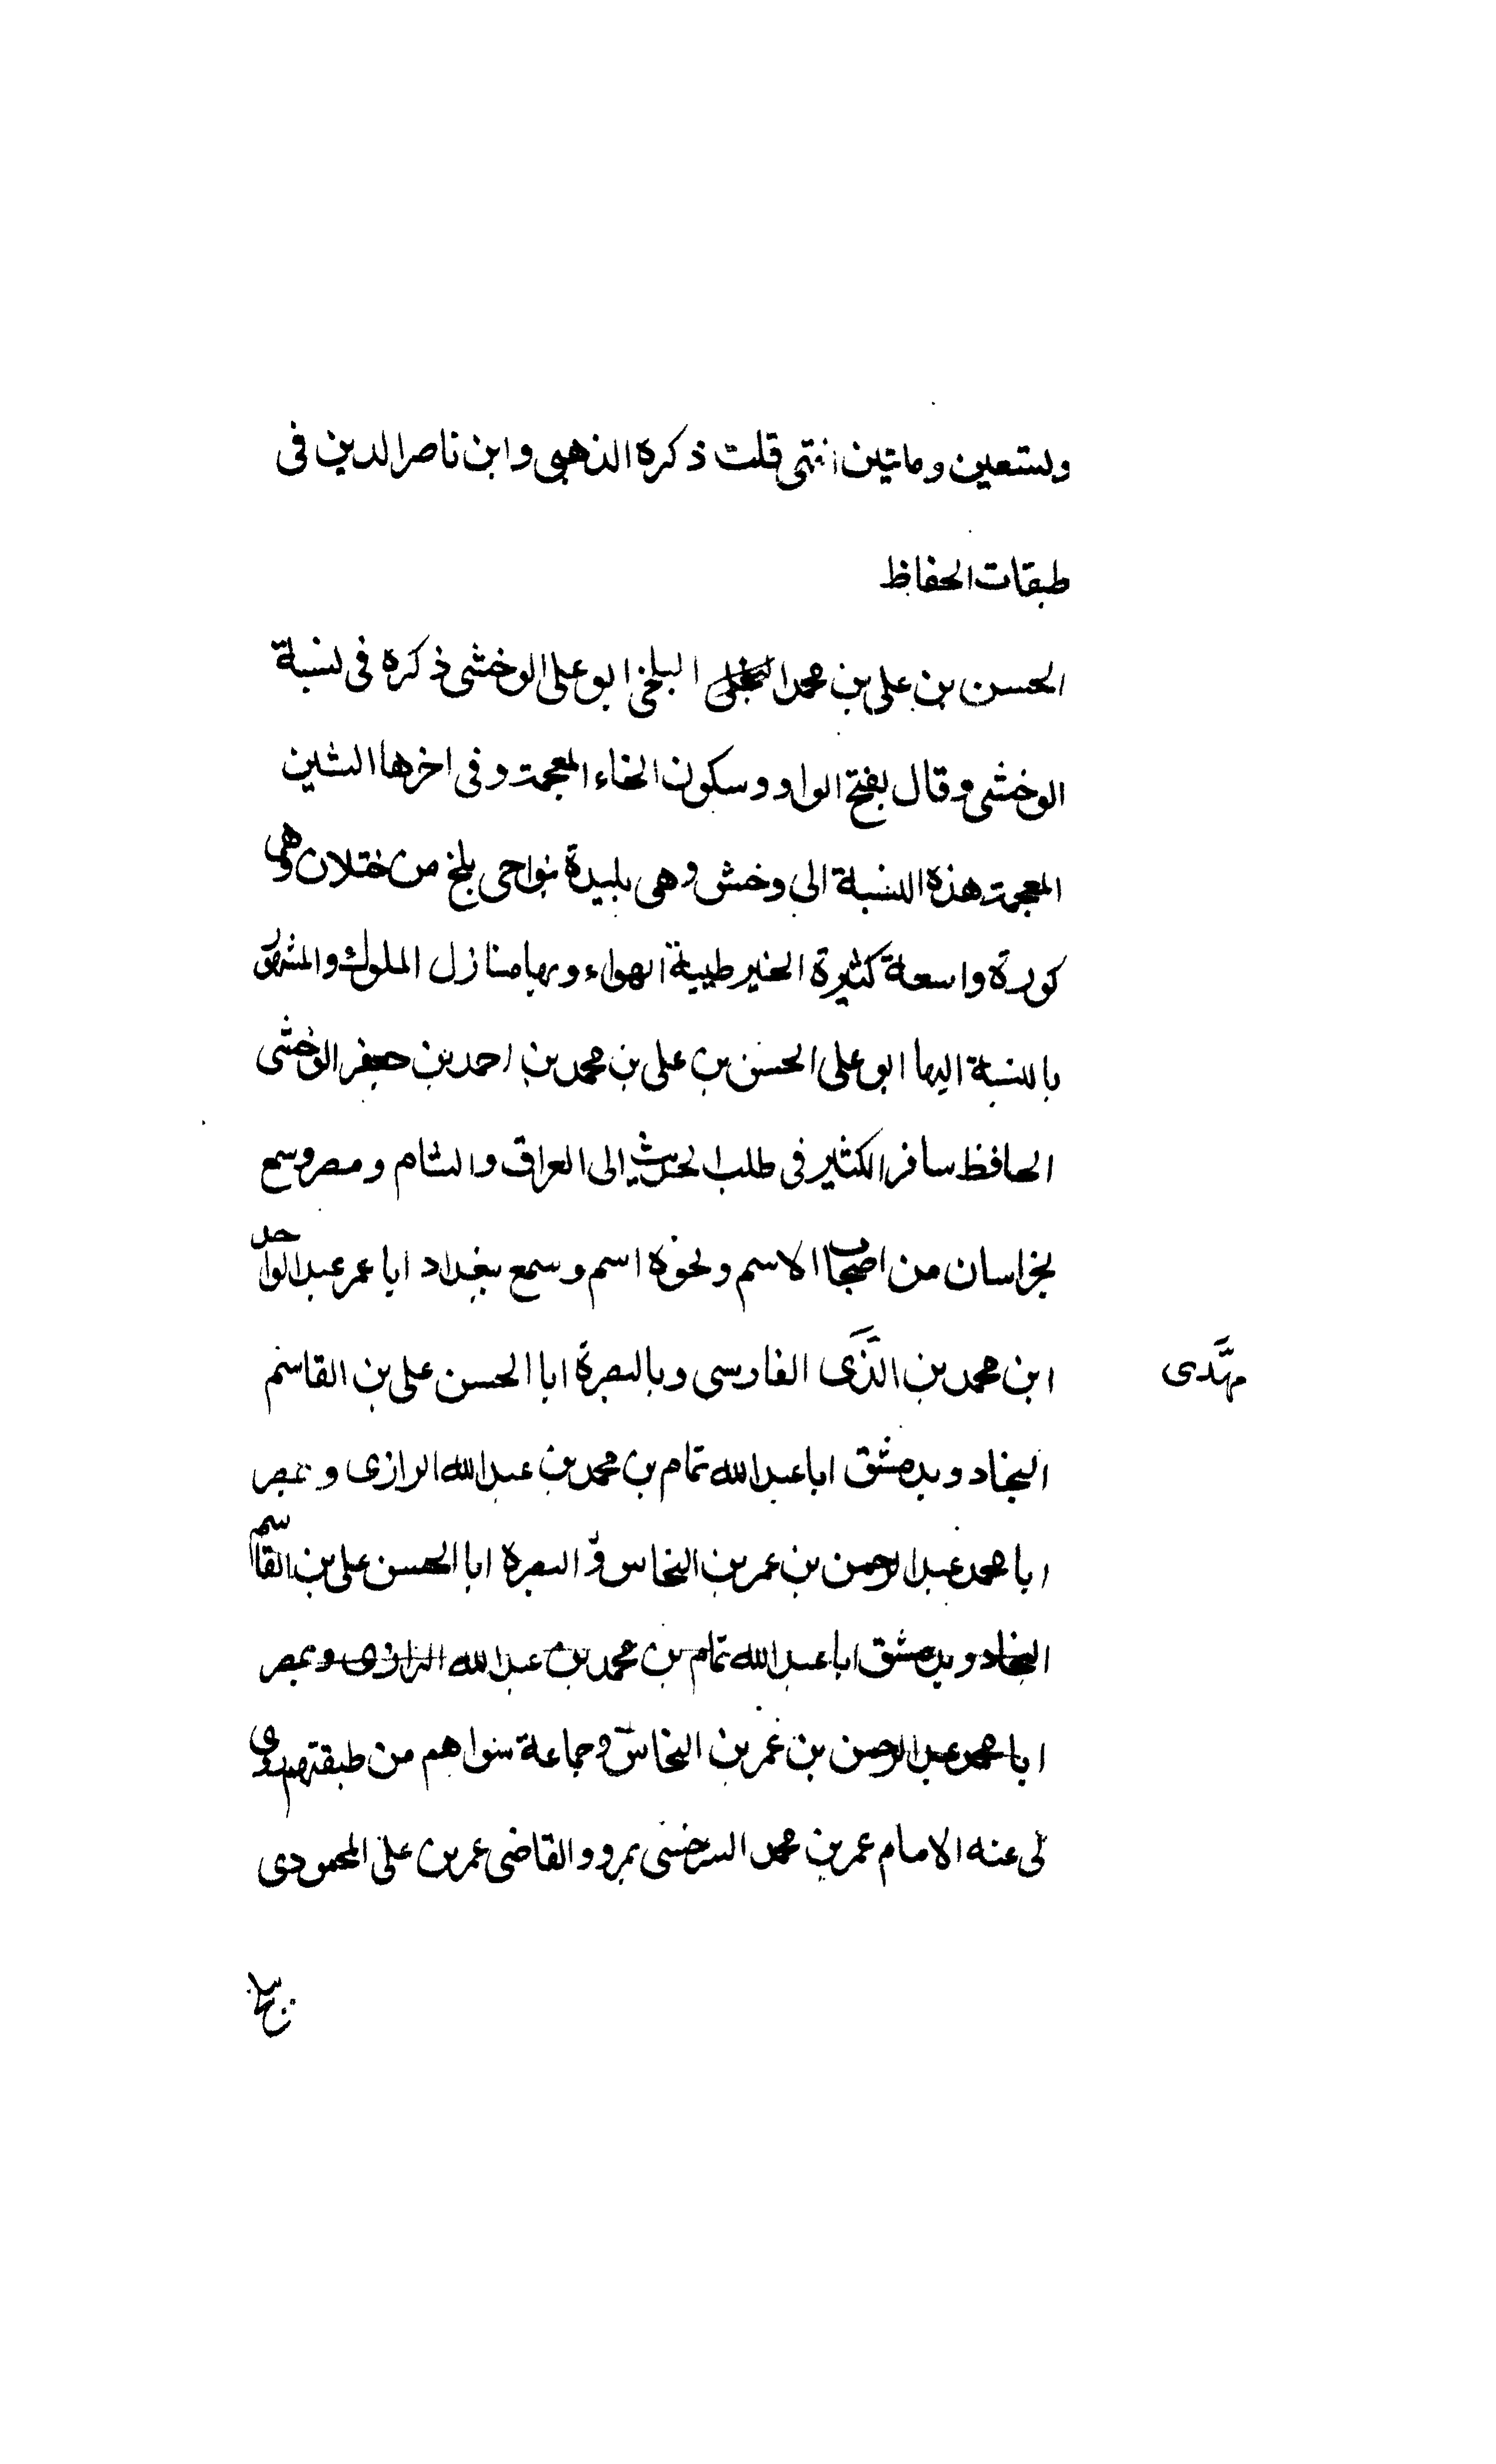 وتسعين ومائتين انتهى قلت ذكره الذهبى وابن ناصر الدين فى
طبقات الحفاظ
الحسن بن على بن محمد البلخى ابو على الوخشى ذكره فى نسبة
الوخشى وقال بفتح الواو وسكون الخاء المعجمة وفى اخرها الشين
المعجمة هذه النسبة الى وخش وهى بليدة بنواحى بلخ من ختلان وهى
كورة واسعة كثيرة الخير طيبة الهواء وبها منازل الملوك والمشهور
بالنسبة اليها ابو على الحسن بن على بن محمد بن احمد بن جعفر الوخشى
الحافظ سافر الكثير فى طلب الحديث الى العراق والشام ومصر وسمع
بخراسان من اصحاب الاسم ونحوه اسم وسمع ببغداد ابا عمر عبد الواحد
ابن محمد بن الذى الفارسى وبالبصرة ابا الحسن على بن القاسم
مهدى
النجاد وبدمشق ابا عبد الله تمام بن محمد بن عبد الله الرازى وبمصر
ابا محمد عبد الرحمن بن عمر بن النخاس و البصرة ابا الحسن على بن القاسم
النجاد وبدمشق ابا عبد الله تمام بن محمد بن عبد الله الرازى وبمصر
ابا محمد عبد الرحمن بن عمر بن النخاس وجماعة سواهم من طبقتهم روى
لى عنه الامام عمر بن محمد السرخسى بمرو والقاضى عمر بن على المحمودى